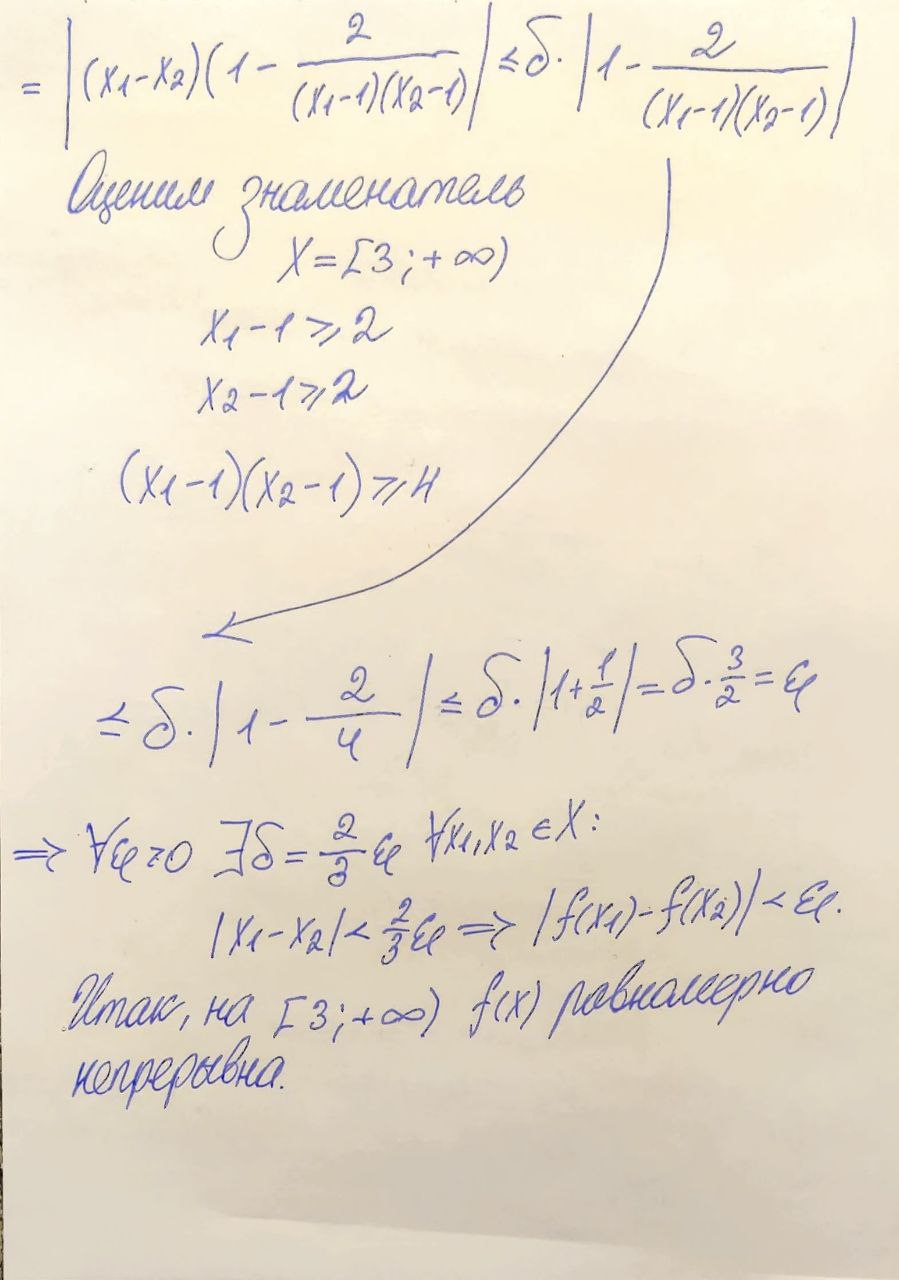 = |(x₁-x₂)(1 - 2/((x₁-1)(x₂-1))| ≤ δ·|1 - 2/((x₁-1)(x₂-1))|
Оценим знаменатель
X = [3; +∞)
x₁-1 ⩾ 2
x₂-1 ⩾ 2
(x₁-1)(x₂-1) ⩾ 4
≤ δ·|1 - 2/4| ≤ δ·|1+1/2| = δ·3/2 = ε
⇒ ∀ε>0 ∃δ = 2/3 ε ∀x₁,x₂ ∈ X:
|x₁-x₂| < 2/3 ε ⇒ |f(x₁)-f(x₂)| < ε.
Итак, на [3; +∞) f(x) равномерно
непрерывна.